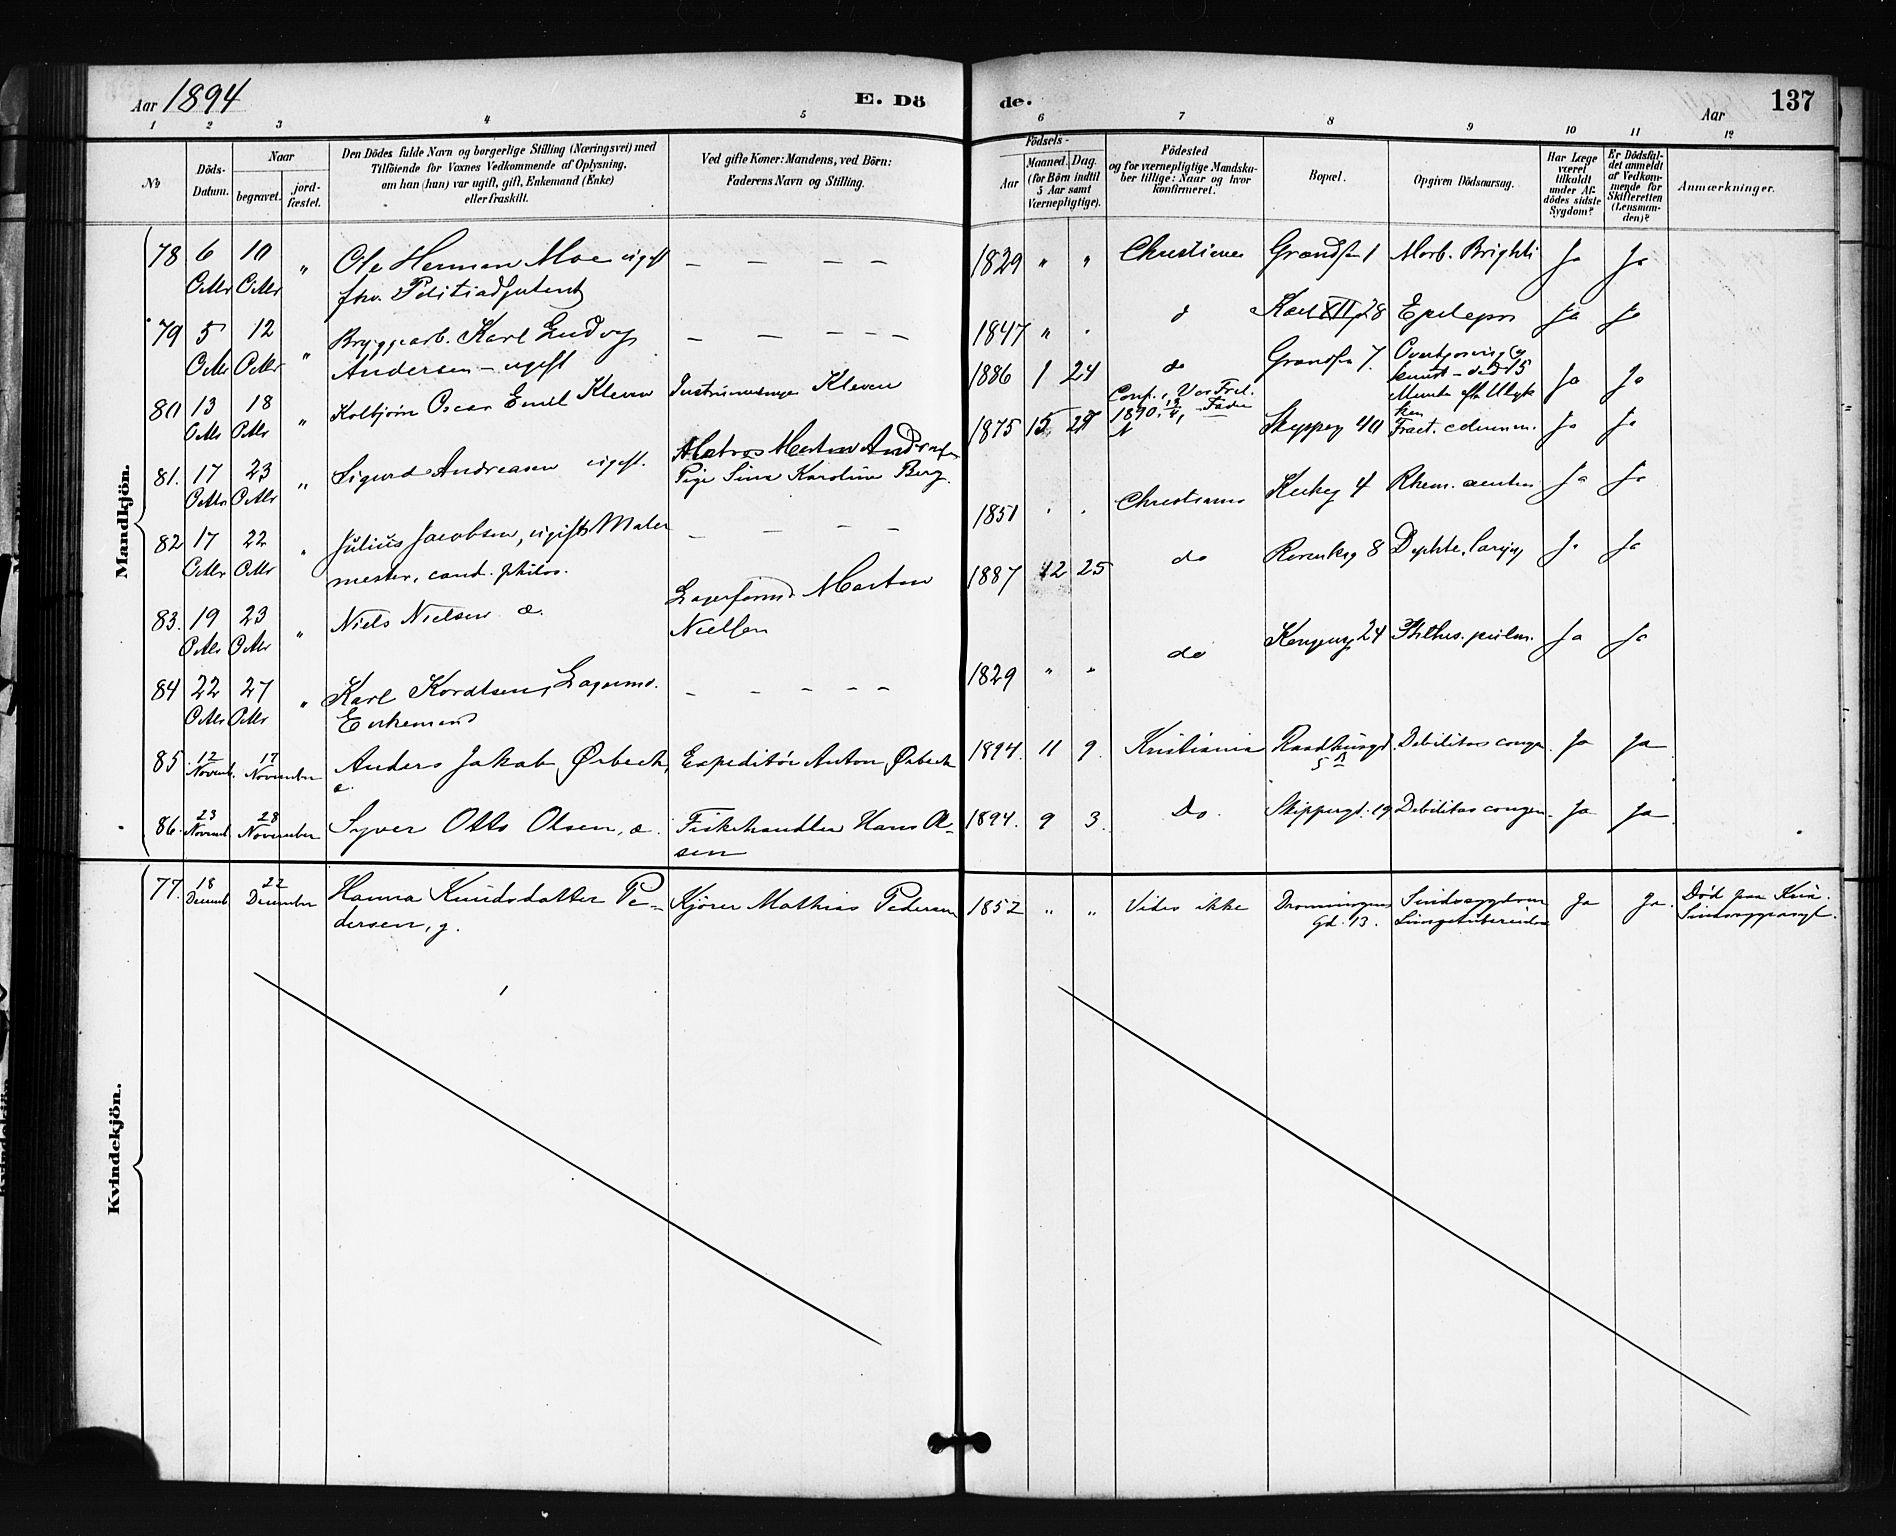 Aar 1894
E. Dö
de.
Aar
137
1 2 3 4 5 6 7 8 9 10 11 12
No
Döds-
Datum.
Naar
begravet.
jord-
fæstet.
Den Dödes fulde Navn og borgerlige Stilling (Næringsvei) med
Tilföiende for Voxnes Vedkommende af Oplysning,
om han (hun) var ugift, gift, Enkemand (Enke)
eller fraskilt.
Ved gifte Koner: Mandens, ved Börn:
Faderens Navn og Stilling.
Födsels-
Aar
Maaned. Dag.
(for Börn indtil
5 Aar samt
Værnepligtige).
Födested
og for værnepligtige Mandska-
ber tillige: Naar og hvor
konfirmeret.
Bopæl.
Opgiven Dödsaarsag.
Har Læge
været
tilkaldt
under Af-
dödes sidste
Sygdom?
Er Dödsfal-
det anmeldt
af Vedkom-
mende for
Skifteretten
(Lensman-
den)?
Anmærkninger.
Mandkjön.
78 6 10 " Ole Herman Moe ugift — — — — 1829 " " Christiania Grændsen 1 Morb. Brighti Ja Ja
Octbr Octbr fhv. Politiadjutant
79 5 12 " Bryggearb. Karl Ludvig — — — — 1847 " " d Karl XII g 28 Epilepsi Ja Ja
Octbr Octbr Andersen — ugift
80 13 18 " Kolbjørn Oscar Emil Kleven Instrumentmager Kleven 1886 1 24 do Grændsen 7. Ja Ja
Octbr Octbr
81. 17 23 " Sigurd Andreasen ugift. Matros Morten Andreasen 1875 15 29 Conf. Vor Frel.
1890 Skipperg 40 Fract. column. Ja Ja
Octbr Octbr Pige Sina Karoline Berg.
82 17 22 " Julius Jacobsen, ugift Maler — — — — 1851 " " Christiania Kirkeg 4 Rheum. Ja Ja
Octbr Octbr mester, cand. philos.
83. 19 23 " Niels Nielsen æ. Lagerformd. Morten 1887 12 25 do Revierstg 8 Dyphte. laryng. Ja Ja
Octbr Octbr Nielsen
84 22 27 " Karl Kordtsen, Lagermd. — — — — — 1829 " " do Kongensg 24 Phthis. pulm. Ja Ja
Octbr Octbr Enkemand
85 12 17 Anders Jakob Ørbeck, Expeditör Anton Ørbeck 1894. 11 9. Kristiania Raadhusgd. Debilitas congen. Ja Ja
Novemb. November æ. 5 B
86. 23 28 Syver Otto Olsen, æ. Fiskehandler Hans Ol- 1894. 9 3. Do. Skippergd. 19 Debilitas congen. Ja Ja
Novemb. November sen
Kvindekjön.
77. 18 22 Hanna Knudsdatter Pe- Kjörer Mathias Pedersen 1852 " " Vides ikke Dronningens Sindssygdom Ja Ja. Død paa Kria.
Decemb December dersen, g. Gd. 13. Lungetuberculose Sindssygeasyl.